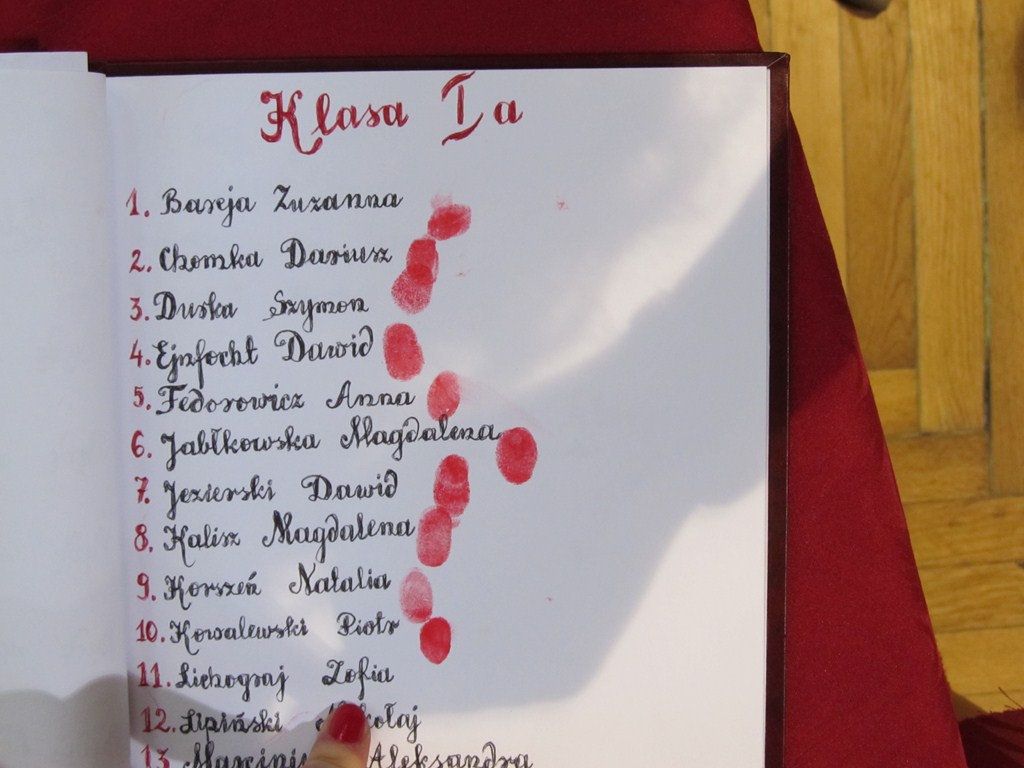 Klasa I a
1. Bareja Zuzanna
2. Chomka Dariusz
3. Duska Szymon
4. Ejnfocht Dawid
5. Fedorowicz Anna
6. Jabłkowska Magdalena
7. Jezierski Dawid
8. Kalisz Magdalena
9. Korszeń Natalia
10. Kowalewski Piotr
11. Lichograj Zofia
12. Lipiński
13. Aleksandra